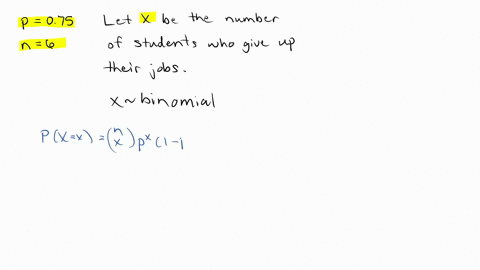 p = 0.75 Let X be the number
n = 6 of students who give up
their jobs.
X ~ binomial
P(X=x) = (n x) p^x (1-1